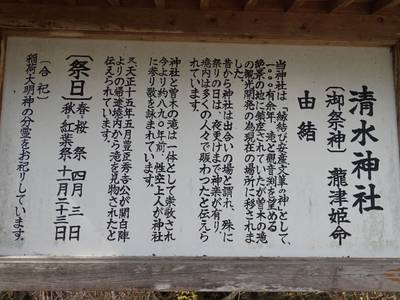 清水神社
(御祭神)瀧津姫命
由緒
当神社は「縁結び安産文章の神」として、
一〇〇〇有余年、滝と観音渕を望める
絶景の地に鎮座されていたが曽木の滝
の観光開発の為現在の場所に移されま
した。
昔から神社は出合いの場と謂れ、殊に
祭りの日は、夜更けまで神楽が有り、
境内は多くの人々で賑わったと伝えら
れています。
神社と曽木の滝は一体として崇敬され
今より約八九〇年前、性空上人が神社
に参り歌を詠まれています。
又、天正十五年五月豊臣秀吉公が関白陣
よりの帰途境内から滝を見物されたと
伝えられています。
(祭日)春・桜祭 四月三日
秋・紅葉祭 十一月二十三日
(合祀)
稲荷大明神の分霊をお祀りしています。